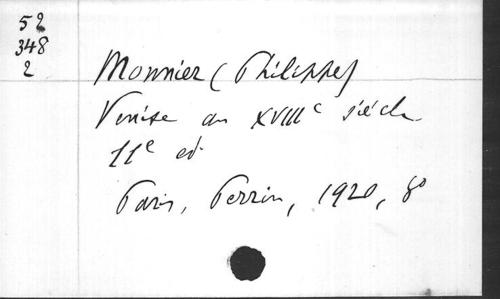 52
348
2
Monnier (Philippe)
Venise au XVIIIe siècle
11e ed.
Paris, Perrin, 1920, 8o